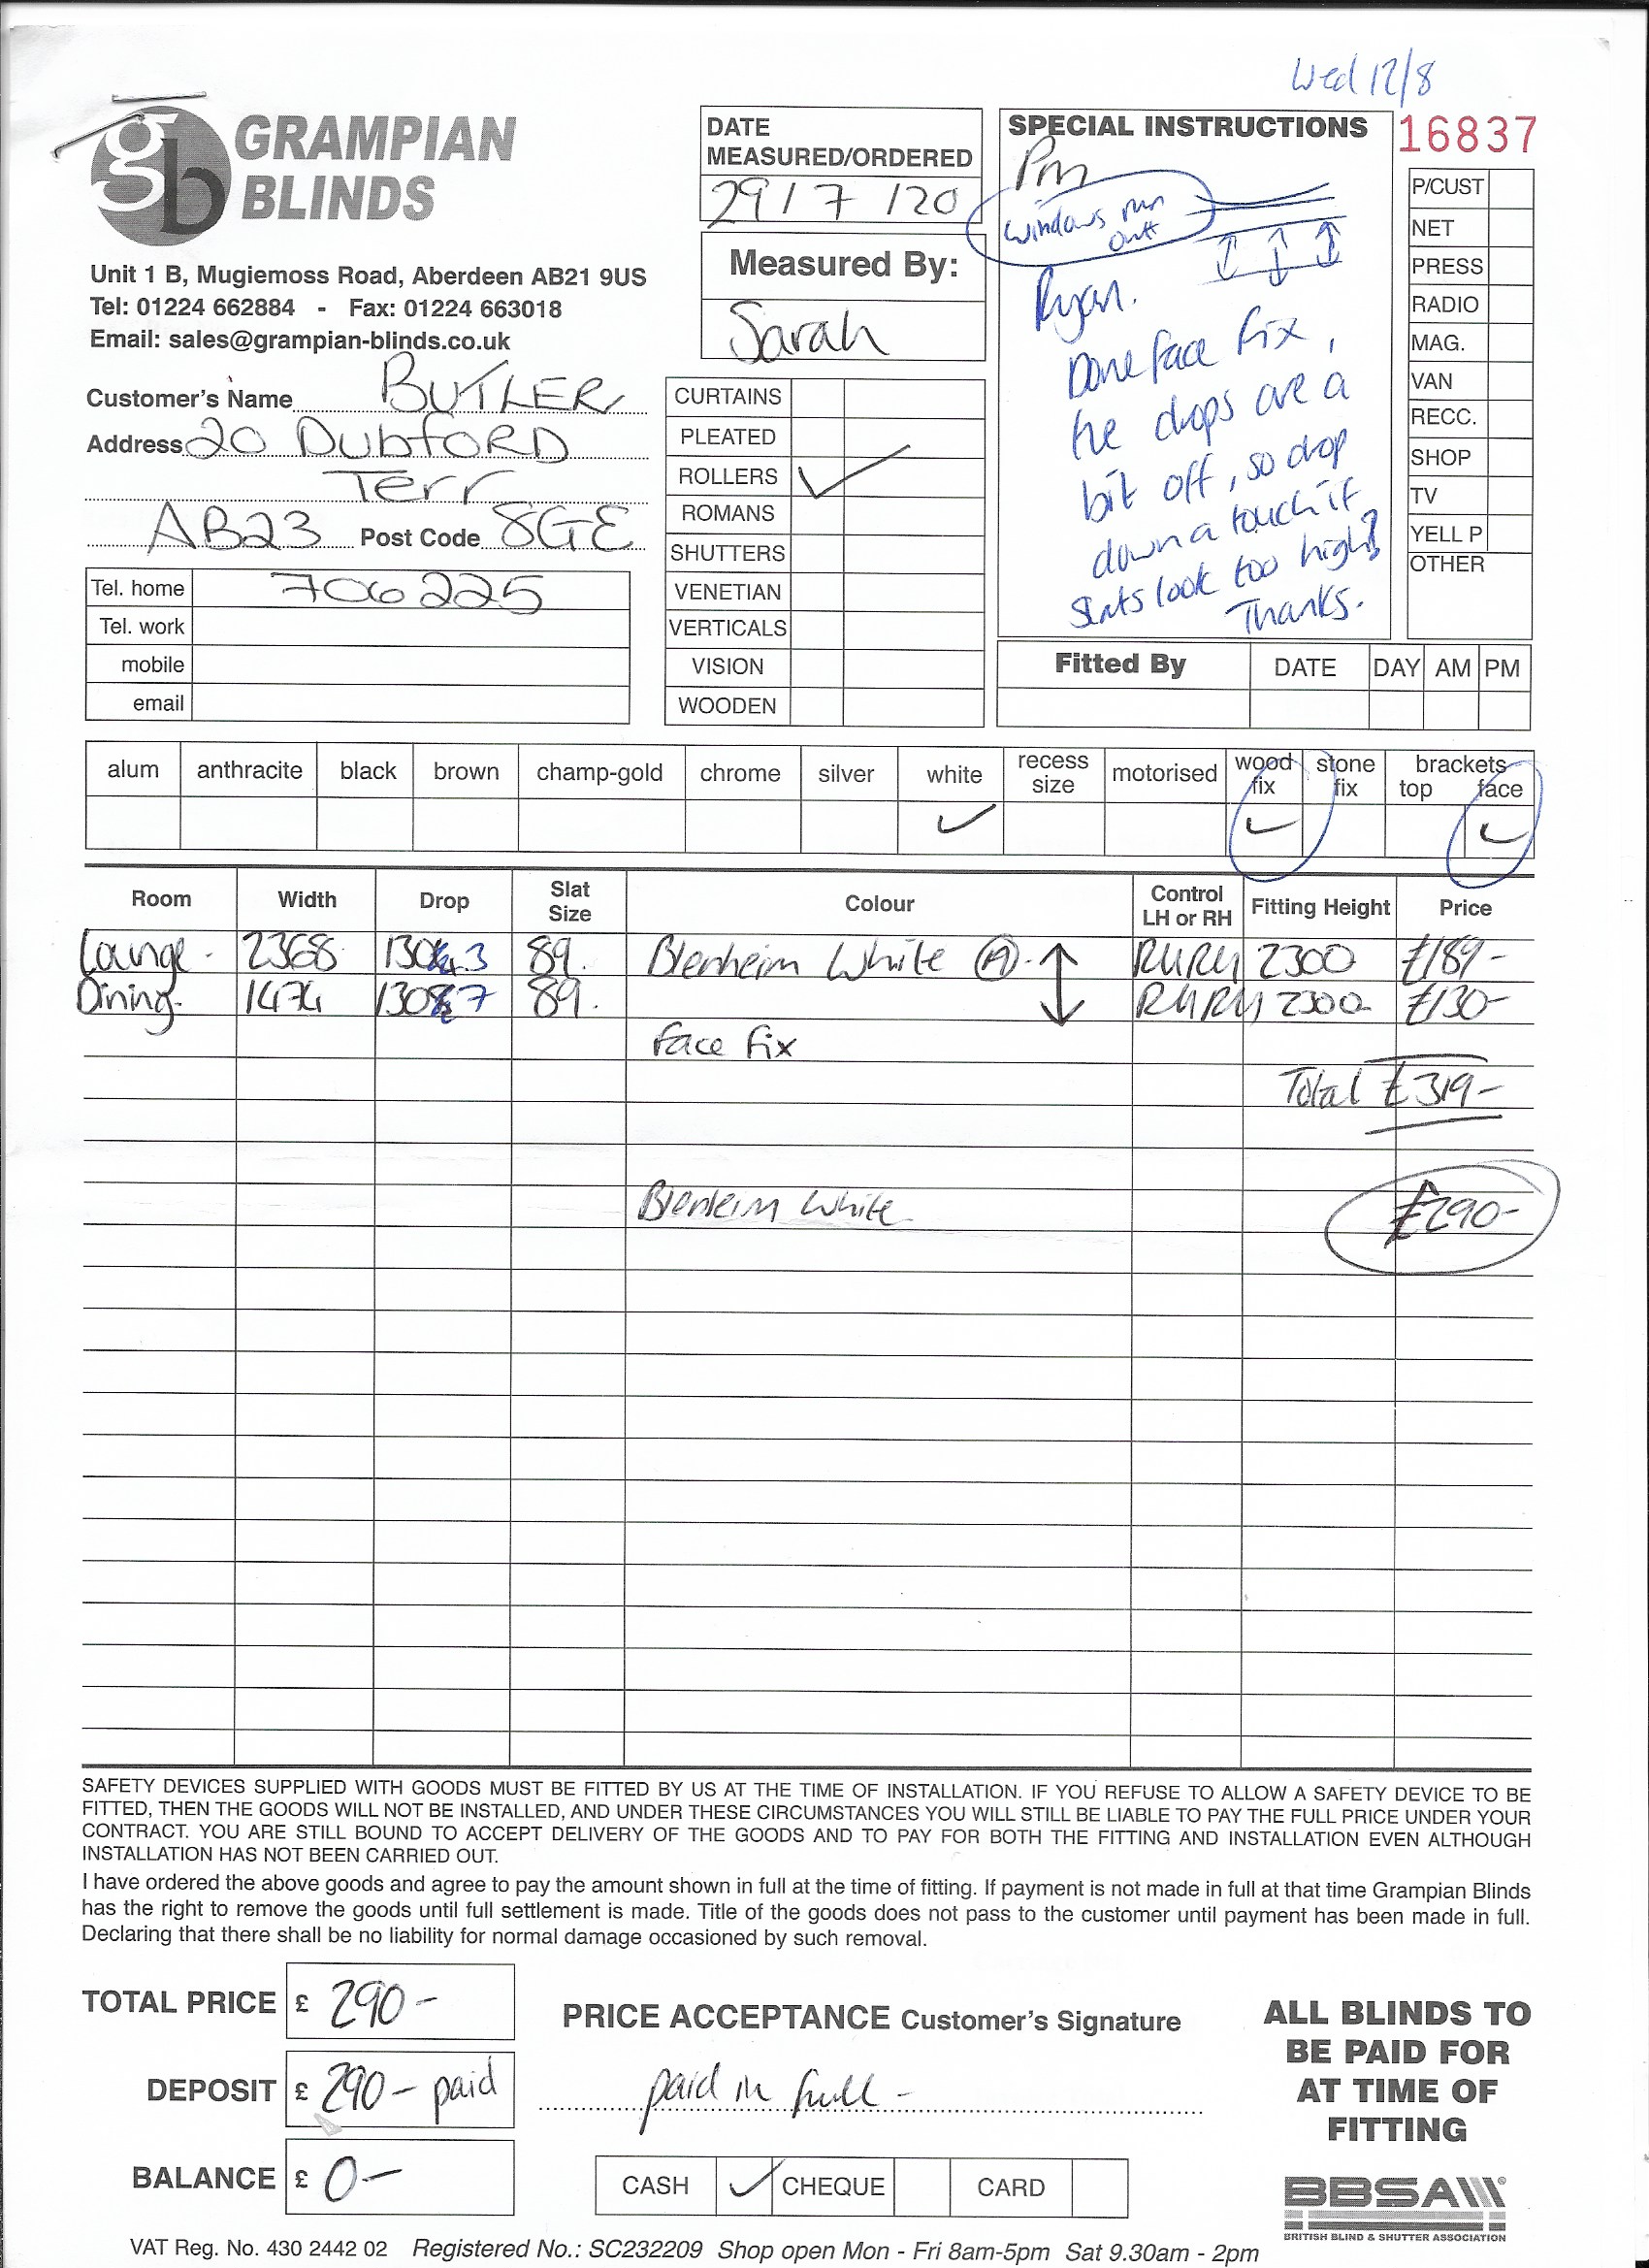 Wed 12/8
GRAMPIAN
BLINDS
Unit 1 B, Mugiemoss Road, Aberdeen AB21 9US
Tel: 01224 662884 - Fax: 01224 663018
Email: sales@grampian-blinds.co.uk
Customer's Name BUTLER
Address 20 Dubford
Terr
AB23 Post Code 8GE
Tel. home 706225
Tel. work
mobile
email
DATE
MEASURED/ORDERED
29/7/20
Measured By:
Sarah
CURTAINS
PLEATED
ROLLERS ✓
ROMANS
SHUTTERS
VENETIAN
VERTICALS
VISION
WOODEN
SPECIAL INSTRUCTIONS
Pm
windows run
out
Ryan.
Done face fix,
the drops are a
bit off, so drop
down a touch if
slats look too high?
Thanks.
16837
P/CUST
NET
PRESS
RADIO
MAG.
VAN
RECC.
SHOP
TV
YELL P
OTHER
Fitted By DATE DAY AM PM
alum anthracite black brown champ-gold chrome silver white recess size motorised wood fix stone fix brackets top face
✓ ✓ ✓
Room Width Drop Slat Size Colour Control LH or RH Fitting Height Price
Lounge - 2368 89. Blenheim White (A). RHRH 2300 £189-
Dining - 1474 89. RHRH 2300 £130-
face fix
Total £319-
Blenheim White £290-
SAFETY DEVICES SUPPLIED WITH GOODS MUST BE FITTED BY US AT THE TIME OF INSTALLATION. IF YOU REFUSE TO ALLOW A SAFETY DEVICE TO BE
FITTED, THEN THE GOODS WILL NOT BE INSTALLED, AND UNDER THESE CIRCUMSTANCES YOU WILL STILL BE LIABLE TO PAY THE FULL PRICE UNDER YOUR
CONTRACT. YOU ARE STILL BOUND TO ACCEPT DELIVERY OF THE GOODS AND TO PAY FOR BOTH THE FITTING AND INSTALLATION EVEN ALTHOUGH
INSTALLATION HAS NOT BEEN CARRIED OUT.
I have ordered the above goods and agree to pay the amount shown in full at the time of fitting. If payment is not made in full at that time Grampian Blinds
has the right to remove the goods until full settlement is made. Title of the goods does not pass to the customer until payment has been made in full.
Declaring that there shall be no liability for normal damage occasioned by such removal.
TOTAL PRICE £ 290-
DEPOSIT £ 290- paid
BALANCE £ 0-
PRICE ACCEPTANCE Customer's Signature
paid in full -
CASH ✓ CHEQUE CARD
ALL BLINDS TO
BE PAID FOR
AT TIME OF
FITTING
BBSA
BRITISH BLIND & SHUTTER ASSOCIATION
VAT Reg. No. 430 2442 02 Registered No.: SC232209 Shop open Mon - Fri 8am-5pm Sat 9.30am - 2pm